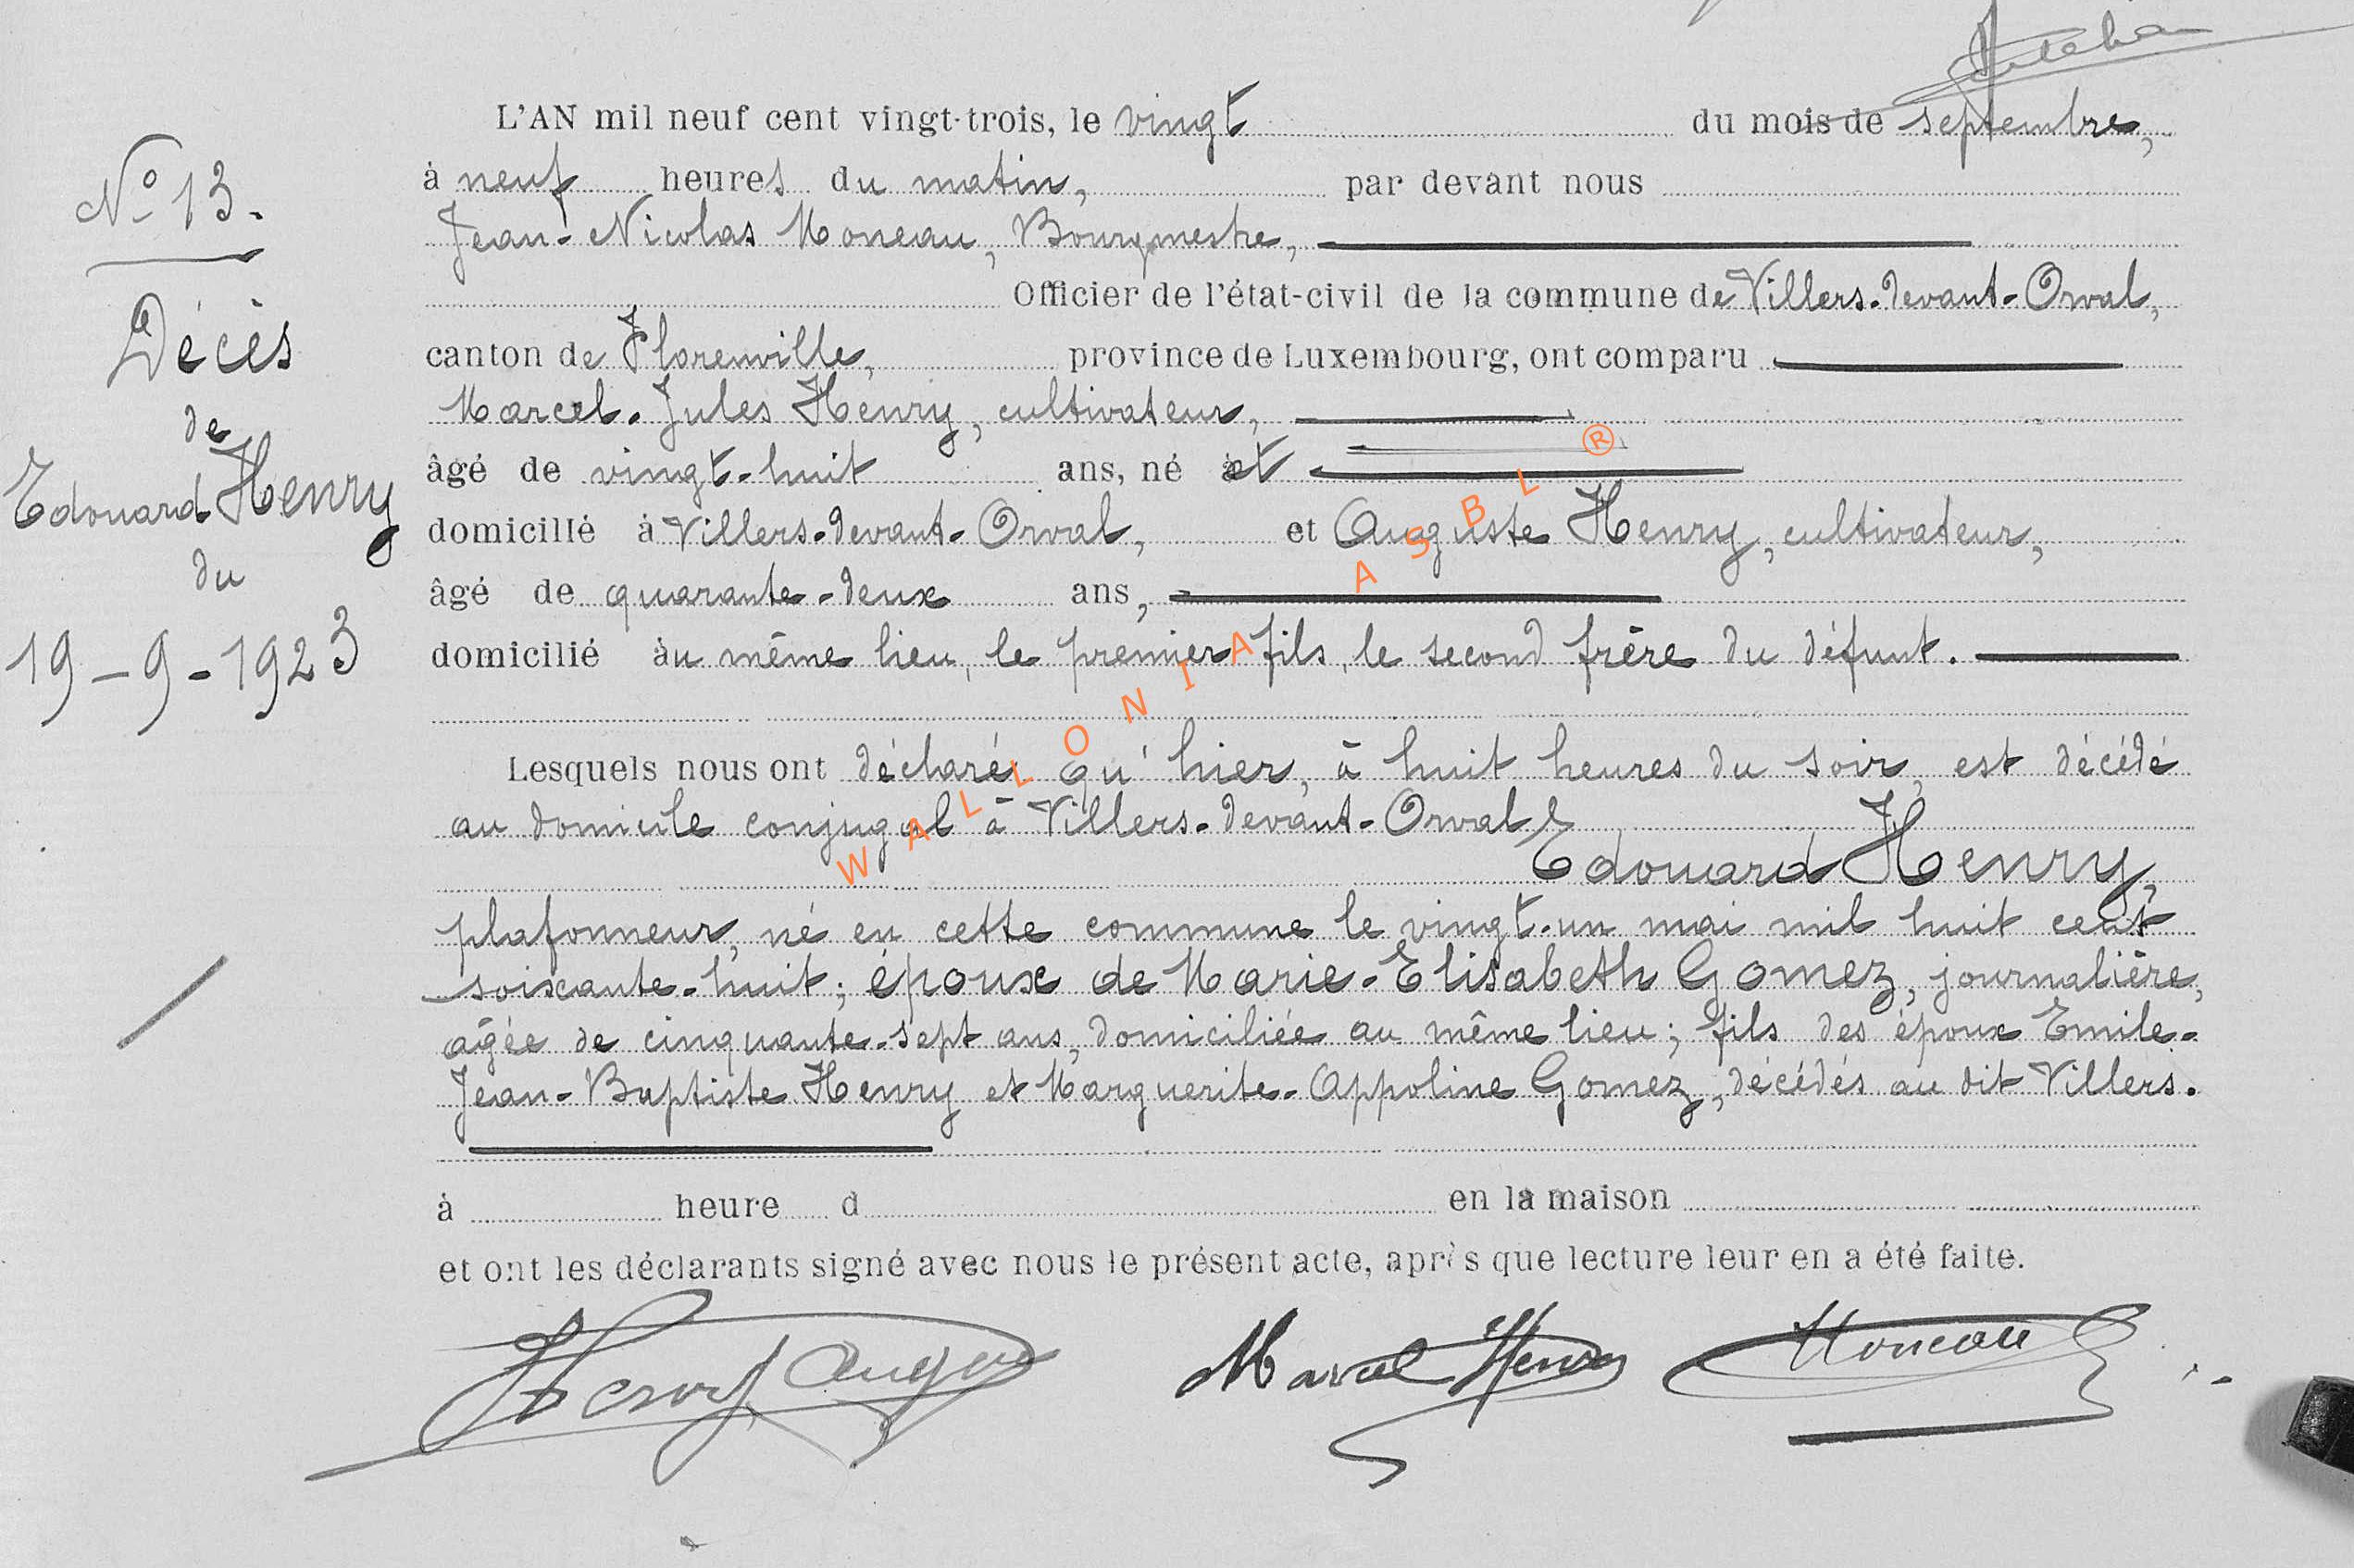 L'AN mil neuf cent vingt-trois, le vingt du mois de septembre,
à neuf heures du matin, par devant nous
Jean-Nicolas Moneau, Bourgmestre,
Officier de l'état-civil de la commune de Villers-devant-Orval,
canton de Florenville, province de Luxembourg, ont comparu
Marcel-Jules Henry, cultivateur,
âgé de vingt-huit ans, né et
domicilié à Villers-devant-Orval, et Auguste Henry, cultivateur,
âgé de quarante-deux ans,
domicilié au même lieu, le premier fils, le second frère du défunt.
Lesquels nous ont déclaré qu'hier, à huit heures du soir, est décédé
au domicile conjugal à Villers-devant-Orval
Edouard Henry,
plafonneur, né en cette commune le vingt-un mai mil huit cent
soixante-huit; époux de Marie-Elisabeth Gomez, journalière,
âgée de cinquante-sept ans, domiciliée au même lieu; fils des époux Emile-
Jean-Baptiste Henry et Marguerite-Appoline Gomez, décédés au dit Villers.
à heure d en la maison
et ont les déclarants signé avec nous le présent acte, après que lecture leur en a été faite.
Henry Marcel Henry Moneau
N° 13.
Décès
de
Edouard Henry
du
19-9-1923
WALLONIA ASBL ®